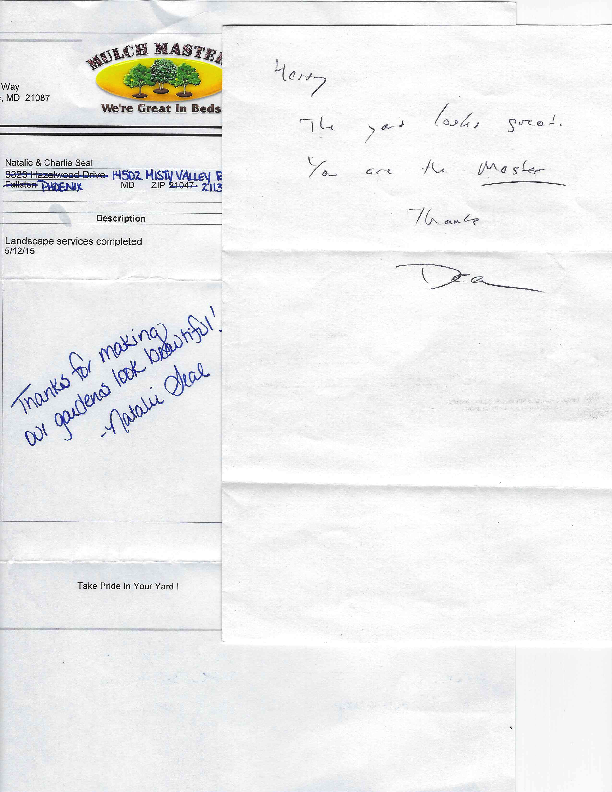 MULCH MASTE
We're Great In Beds
Way
, MD 21087
Natalie & Charlie Seal
9323 Hazelwood Drive 14502 MISTY VALLEY
Fullston PHOENIX MD ZIP 21047
Description
Landscape services completed
5/12/15
Thanks for making
our gardens look beautiful!
-Natalie Seal
Take Pride In Your Yard !
The yard looks great.
You are the Master
Thanks
Dean